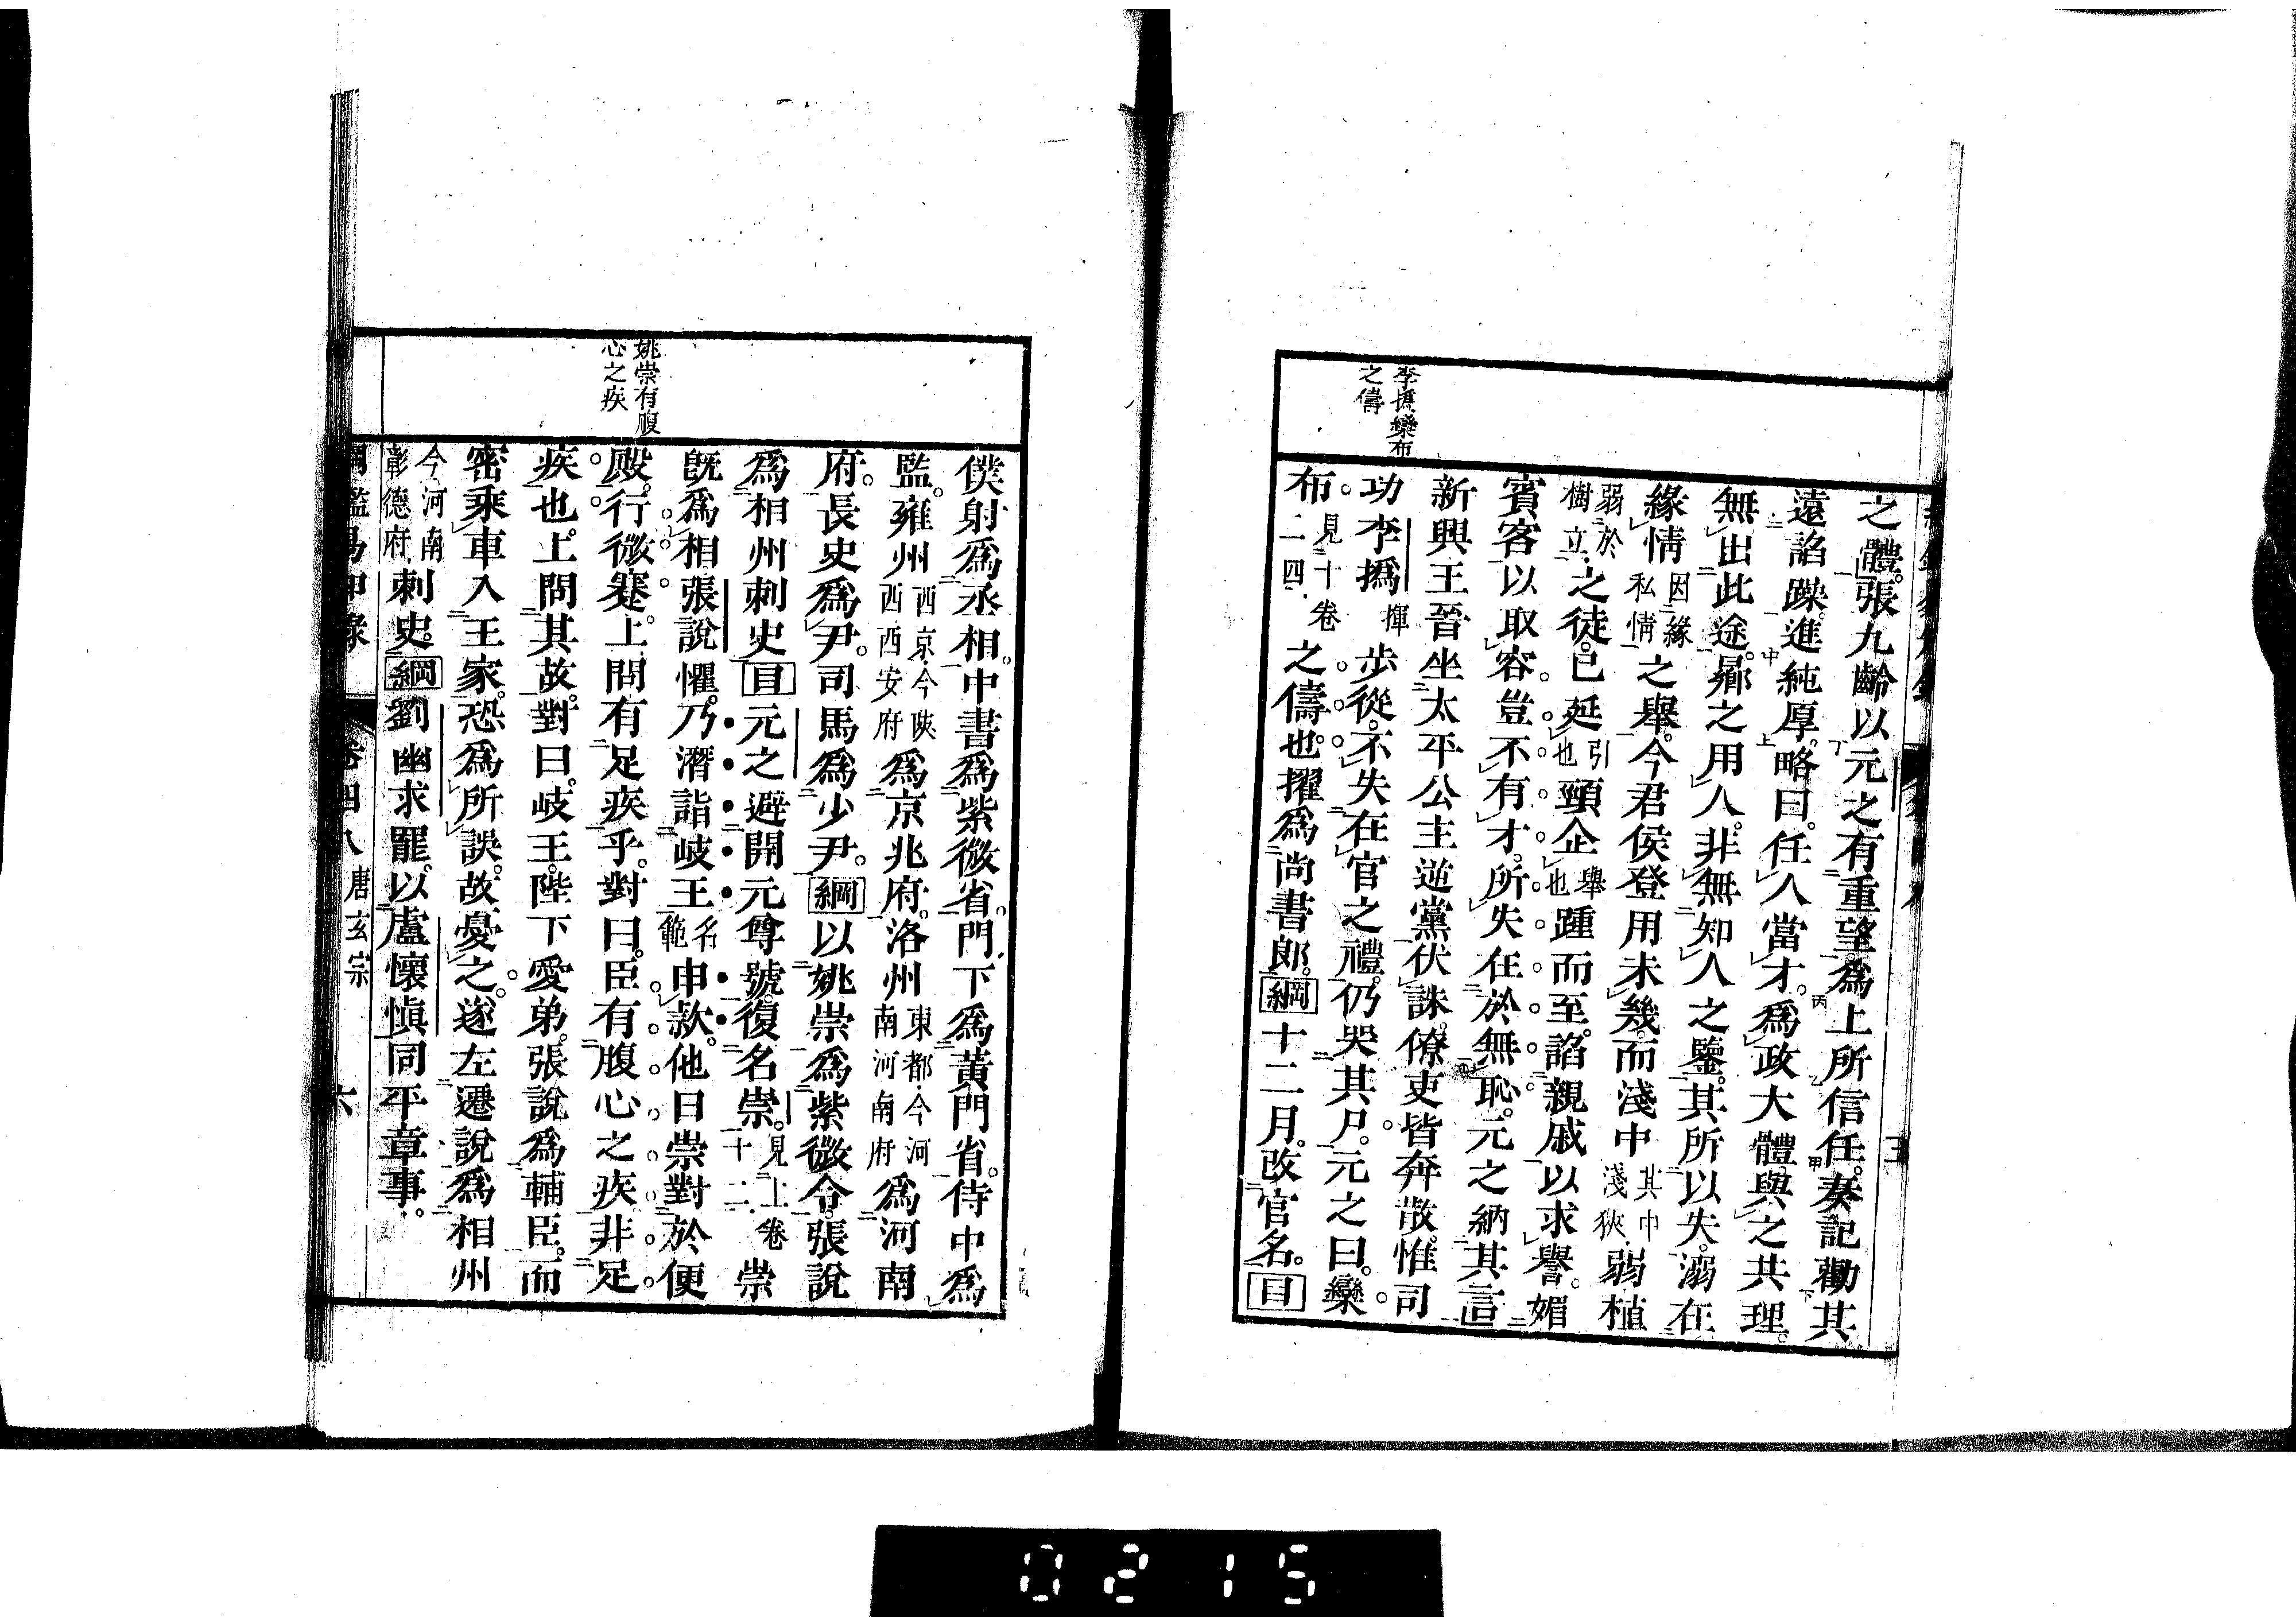 李撝欒布
之儔
之體。張九齡以元之有重望。爲上所信任。奏記勸其
遠諂躁。進純厚。略曰。任人當才。爲政大體。與之共理。
無出此途。曏之用人。非無知人之鑒。其所以失。溺在
緣情因緣私情之舉。今君侯登用未幾。而淺中其中淺狹弱植
弱於樹立之徒。已延引也頸企舉也踵而至。諂親戚以求譽。媚
賓客以取容。豈不有才。所失在於無恥。元之納其言
新興王晉坐太平公主逆黨伏誅。僚吏皆奔散。惟司
功李撝揮步從。不失在官之禮。仍哭其尸。元之曰。欒
布。見十卷二四之儔也。擢爲尚書郎。綱十二月。改官名。目
僕射爲丞相。中書爲紫微省。門下爲黃門省。侍中爲
監。雍州西京今陝西西安府爲京兆府。洛州東都今河南河南府爲河南
府。長史爲尹。司馬爲少尹。綱以姚崇爲紫微令。張說
爲相州刺史目元之避開元尊號。復名崇。見上卷十二崇
既爲相。張說懼。乃潛詣岐王名範申款。他日崇對於便
殿。行微蹇。上問有足疾乎。對曰。臣有腹心之疾。非足
疾也。上問其故。對曰。岐王陛下愛弟。張說爲輔臣。而
密乘車入王家。恐爲所誤。故憂之。遂左遷說爲相州
今河南彰德府刺史。綱劉幽求罷。以盧懷愼同平章事。
姚崇有腹
心之疾
綱鑑易知錄 卷四八 唐玄宗 六
0215